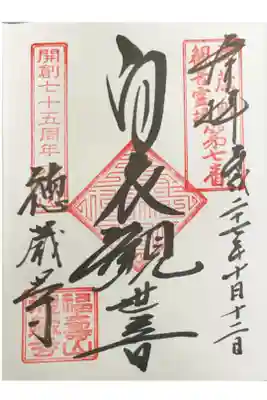 奉拝
平成二十七年十月十二日
観音霊場第七番
白衣觀世音
開創七十五周年
徳蔵寺
福壽山